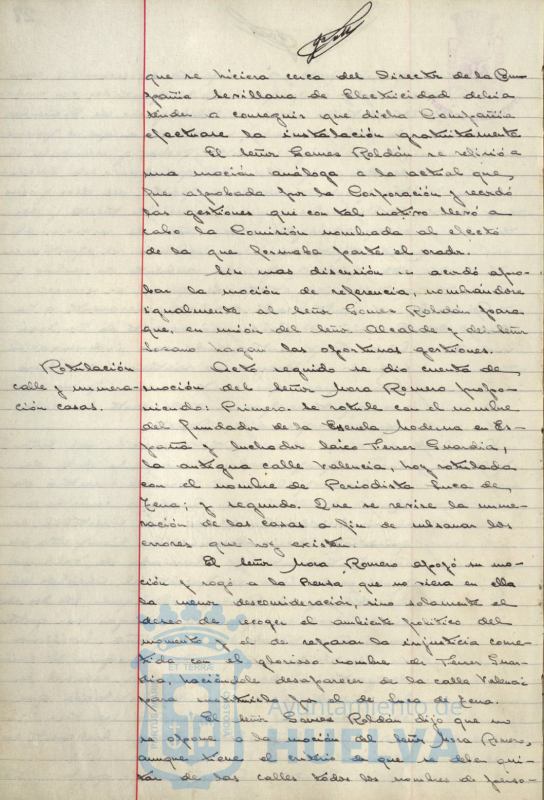 que se hiciera cerca del Director de la Com-
pañia Sevillana de Electricidad debia
tender a conseguir que dicha Compañia
efectuase la instalación gratuitamente
El Señor Gomes Roldán se refirió a
una moción análoga a la actual que,
fue aprobada por la Corporación y recordó
las gestiones que con tal motivo llevó a
cabo la Comisión nombrada al efecto
de la que formaba parte el orador.
Sin mas discusión se acordó apro-
bar la moción de referencia, nombrándose
igualmente al Señor Gomes Roldán para
que, en unión del Señor Alcalde y del Señor
Lozano hagan las oportunas gestiones.
Rotulación
calle y numera-
ción casas.
Acto seguido se dio cuenta de,
moción del Señor Mora Romero propo-
niendo: Primero. Se rotule con el nombre
del fundador de la Escuela Moderna en Es-
paña y luchador laico Ferrer Guardia,
la antigua calle Valencia, hoy rotulada
con el nombre de Periodista Luca de,
Tena; y segundo. Que se revise la nume-
ración de las casas a fin de subsanar los
errores que hoy existen.
El Señor Mora Romero apoyó su mo-
ción y rogó a la Prensa que no viera en ella
la menor desconsideración, sino solamente el
deseo de recoger el ambiente politico del
momento y el de reparar la injusticia come-
tida con el glorioso nombre de Ferrer Guar-
dia, haciéndole desaparecer de la calle Valencia
para sustituirla por el de Luca de Tena.
El Señor Gomes Roldán dijo que no
se opone a la moción del Señor Mora Romero,
aunque tiene el criterio de que se deben qui-
tar de las calles todos los nombres de perso-
Ayuntamiento de
HUELVA